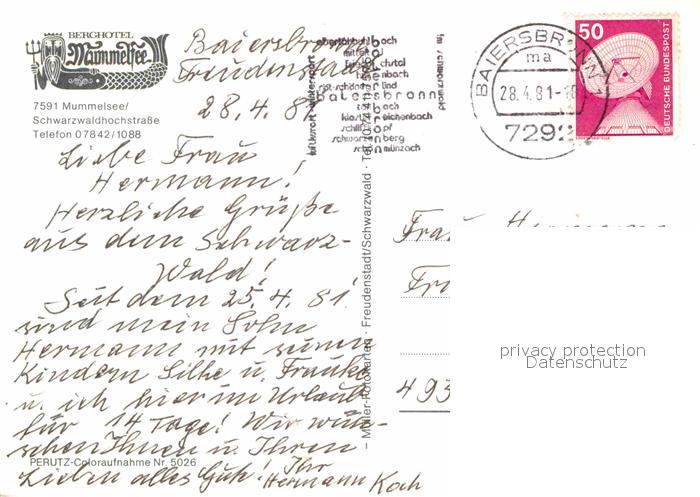 BERGHOTEL
Mummelsee
7591 Mummelsee/
Schwarzwaldhochstraße
Telefon 07842/1088
Baiersbronn
Freudenstadt
28.4.81
Liebe Frau
Hermann!
Herzliche Grüße
aus dem Schwarz-
Wald!
Seit dem 25.4.81.
sind mein Sohn
Hermann mit seinen
Kindern Silke u. Frauke
u. ich hier im Urlaub
für 14 Tage! Wir wün-
schen Ihnen u. Ihren
Lieben alles Gute! Ihr
Hermann Koch
PERUTZ-Coloraufnahme Nr. 5026
Müller-Fotokarten · Freudenstadt/Schwarzwald
luftkurort · wintersport
im schwarzwald
baiersbronn
BAIERSBRONN 1
ma
28.4.81-18
7292
50
DEUTSCHE BUNDESPOST
Frau Hermann
493
privacy protection
Datenschutz